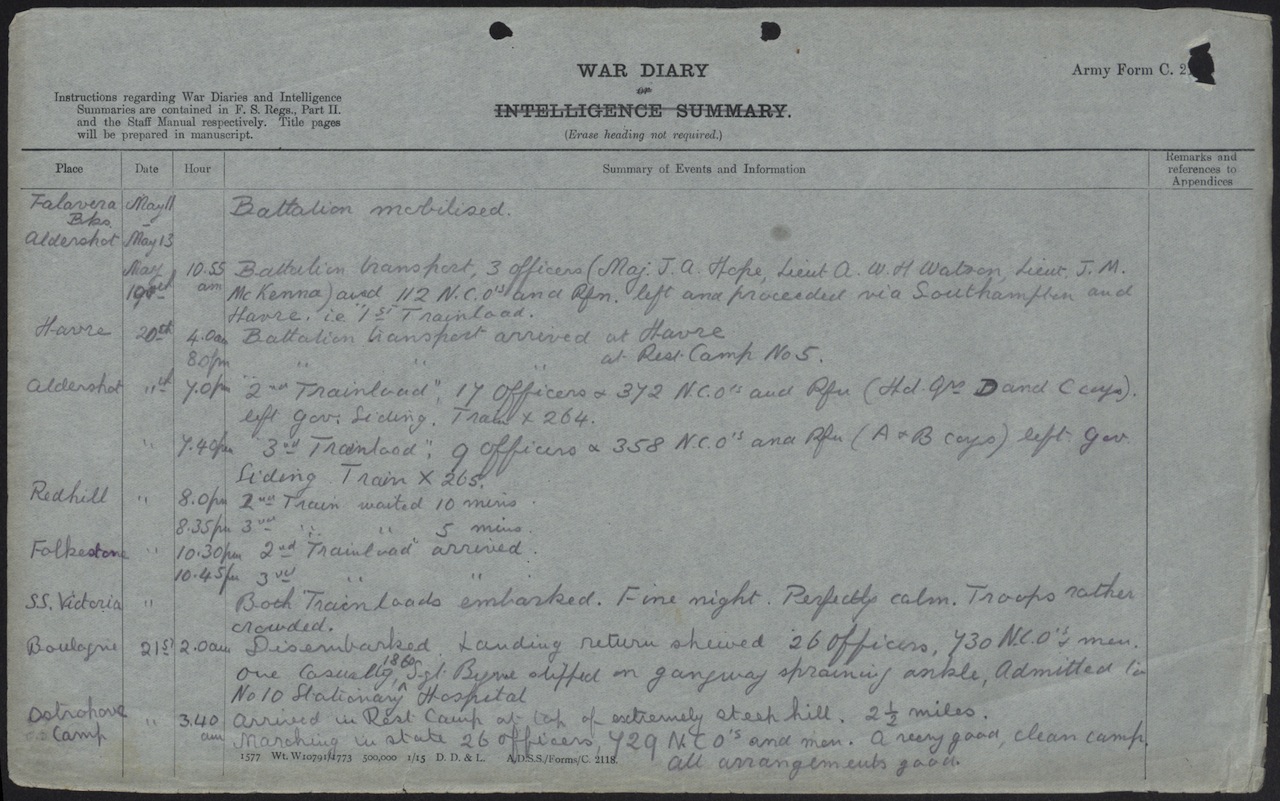 WAR DIARY
or
INTELLIGENCE SUMMARY.
(Erase heading not required.)
Army Form C. 2
Instructions regarding War Diaries and Intelligence
Summaries are contained in F. S. Regs., Part II.
and the Staff Manual respectively. Title pages
will be prepared in manuscript.
Place Date Hour Summary of Events and Information Remarks and references to Appendices
Talavera May 11 Battalion mobilised.
Bks. -
Aldershot May 13
May 10.55 Battalion transport, 3 officers (Maj. J. A. Hope, Lieut A. W. H Watson, Lieut. J. M.
19th am McKenna) and 112 N.C.O's and Rfn. left and proceeded via Southampton and
Havre. ie "1st Trainload.
Havre 20th 4.0am Battalion transport arrived at Havre
8.0pm " " " at Rest Camp No 5.
Aldershot "th 7.0pm "2nd Trainload", 17 Officers & 372 N.C.O's and Rfn (Hd. Qrs D and C coys).
left Gov: Siding. Train X 264.
" 7.40pm "3rd Trainload"; 9 Officers & 358 N.C.O's and Rfn (A & B coys) left Gov.
Siding Train X 265.
Redhill " 8.0pm 2nd Train waited 10 mins
8.35pm 3rd " " 5 mins.
Folkestone " 10.30pm 2nd Trainload arrived.
10.45pm 3rd " "
SS. Victoria " Both Trainloads embarked. Fine night. Perfectly calm. Troops rather
crowded.
Boulogne 21st 2.0am Disembarked. Landing return shewed 26 officers, 730 N.C.O's & men.
One casualty, 1860 Sgt. Byrne slipped on gangway spraining ankle, Admitted to
No 10 Stationary Hospital
Ostrohove " 3.40 Arrived in Rest Camp at top of extremely steep hill. 2½ miles.
Camp am Marching in state 26 officers, 729 N.C.O's and men. A very good, clean camp.
All arrangements good.
1577 Wt. W10791/1773 500,000 1/15 D. D. & L. A.D.S.S./Forms/C. 2118.